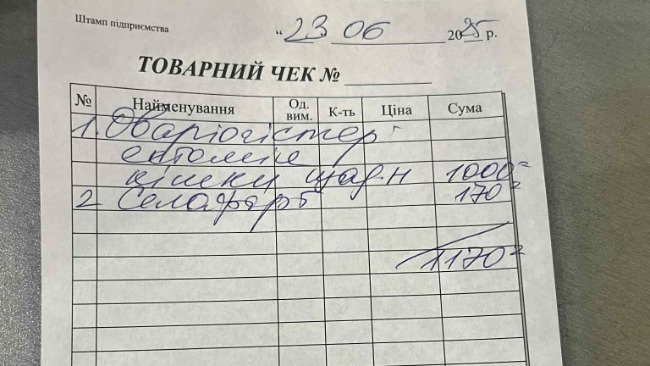 Штамп підприємства
“ 23 „ 06 2025 р.
ТОВАРНИЙ ЧЕК №
№ Найменування Од. вим. К-ть Ціна Сума
1. Оваріогістер
ектомія
кішки щад. н 1000=
2 Селафорт 170=
1170=